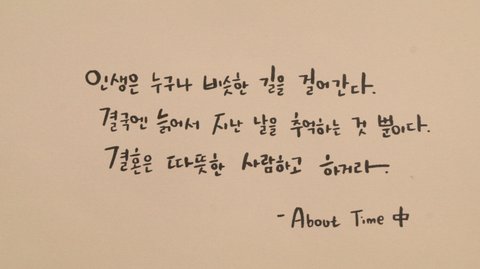 인생은 누구나 비슷한 길을 걸어간다.
결국엔 늙어서 지난 날을 추억하는 것 뿐이다.
결혼은 따뜻한 사람하고 하거라.
- About Time 中